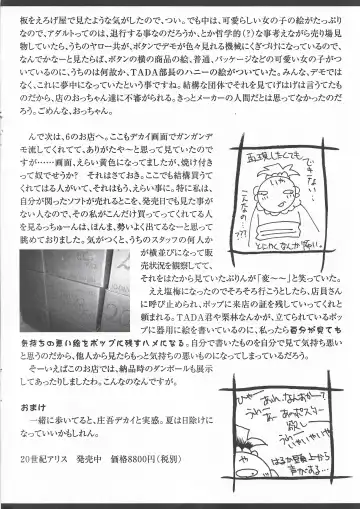 板をえろげ屋で見たような気がしたので、つい。でも中は、可愛らしい女の子の絵がたっぷり
なので、アダルトってのは、退行する事なのだろうか、とか哲学的(?)な事考えながら売り場見
物していたら、うちのヤロー共が、ボタンでデモが色々見れる機械にくぎづけになっているので、
なんでかなーと見たらば、ボタンの横の商品の絵、普通、パッケージなどの可愛い女の子がつ
いているのに、うちのは何故か、TADA部長のハニーの絵がついていた。みんな、デモではな
く、これに夢中になっていたという事ですね。結構な団体でそれを見てげはげは言うてたも
のだから、店のおっちゃん達に不審がられる。きっとメーカーの人間だとは思ってなかったのだ
ろう。ごめんな、おっちゃん。
んで次は、6のお店へ。ここもデカイ画面でガンガンデ
モ流してくれてて、ありがたやーと思って見ていたので
すが……画面、えらい黄色になってましたが、焼け付き
って奴でせうか? それはさておき。ここでも結構買うて
くれてはる人がいて、それはもう、えらい事に。特に私は、
自分が関ったソフトが売れるとこを、発売日でも見た事が
ない人なので、その私がこんだけ買ってってくれてる人
を見るっちゅーんは、ほんま、勢いよく出てるなーと思って
眺めておりました。気がつくと、うちのスタッフの何人か
が横並びになって販
売状況を観察してて、
それをはたから見ていたぷりんが「変〜〜」と笑っていた。
ええ塩梅になったのでそろそろ行こうとしたら、店員さん
に呼び止められ、ポップに来店の証を残していってくれと
頼まれる。TADA君や栗林なんかが、立てられているポッ
プに器用に絵を書いているのに、私ったら自分が見ても
気持ちの悪い絵をポップに残すハメになる。自分で書いたものを自分で見て気持ち悪い
と思うのだから、他人から見たらもっと気持ちの悪いものになってしまっているだろう。
そーいえばこのお店では、納品時のダンボールも展示
してあったりしましたわ。こんなのなんですが。
おまけ
一緒に歩いてると、庄吾デカイと実感。夏は日除けに
なっていいかもしれん。
20世紀アリス 発売中 価格8800円(税別)
正視したくても
できない…
いや
こんなもの…???
とにかくなんか怖い
ひゃー
あれ、なんあれー
うれー
あーあのポスター
欲しー
うれー
いやいやいや
や
はるか頭上から
声がする…